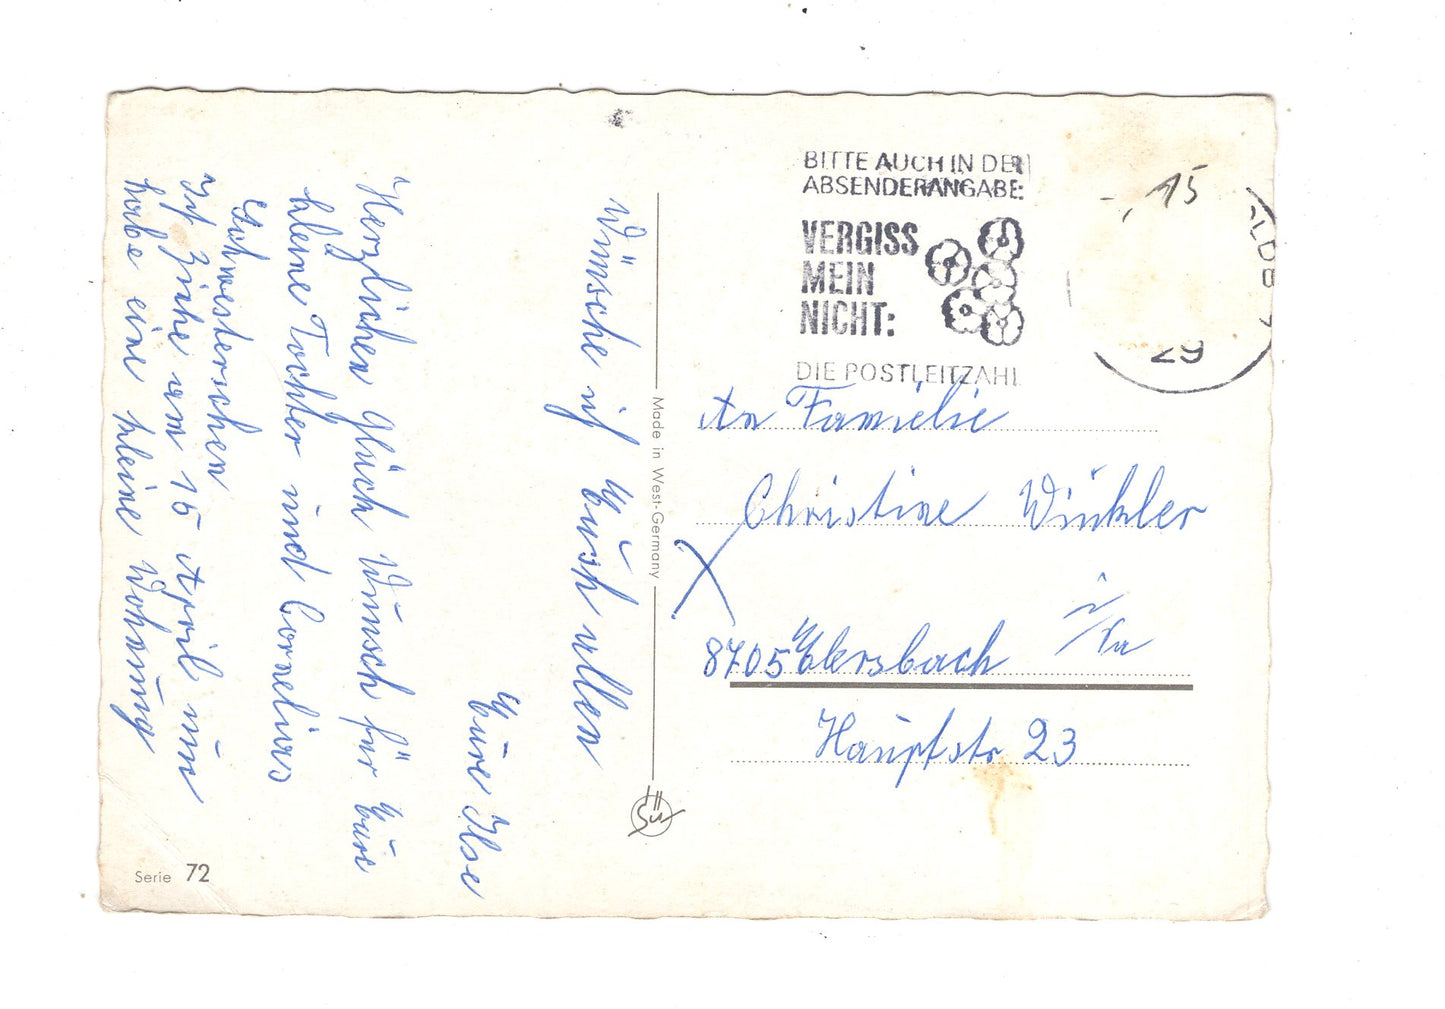 Wünsche ich Euch allen
Eure Ilse
Herzlichen Glück Wünsch für Eure
kleine Tochter und Cornelias
Schwesterchen
Ich Ziehe am 15 April um
habe eine kleine Wohnung
Made in West-Germany
Serie 72
BITTE AUCH IN DER
ABSENDERANGABE:
VERGISS
MEIN
NICHT:
DIE POSTLEITZAHL
15
29
An Familie
Christine Winkler
8705 Ebersbach i/Sa
Hauptstr 23